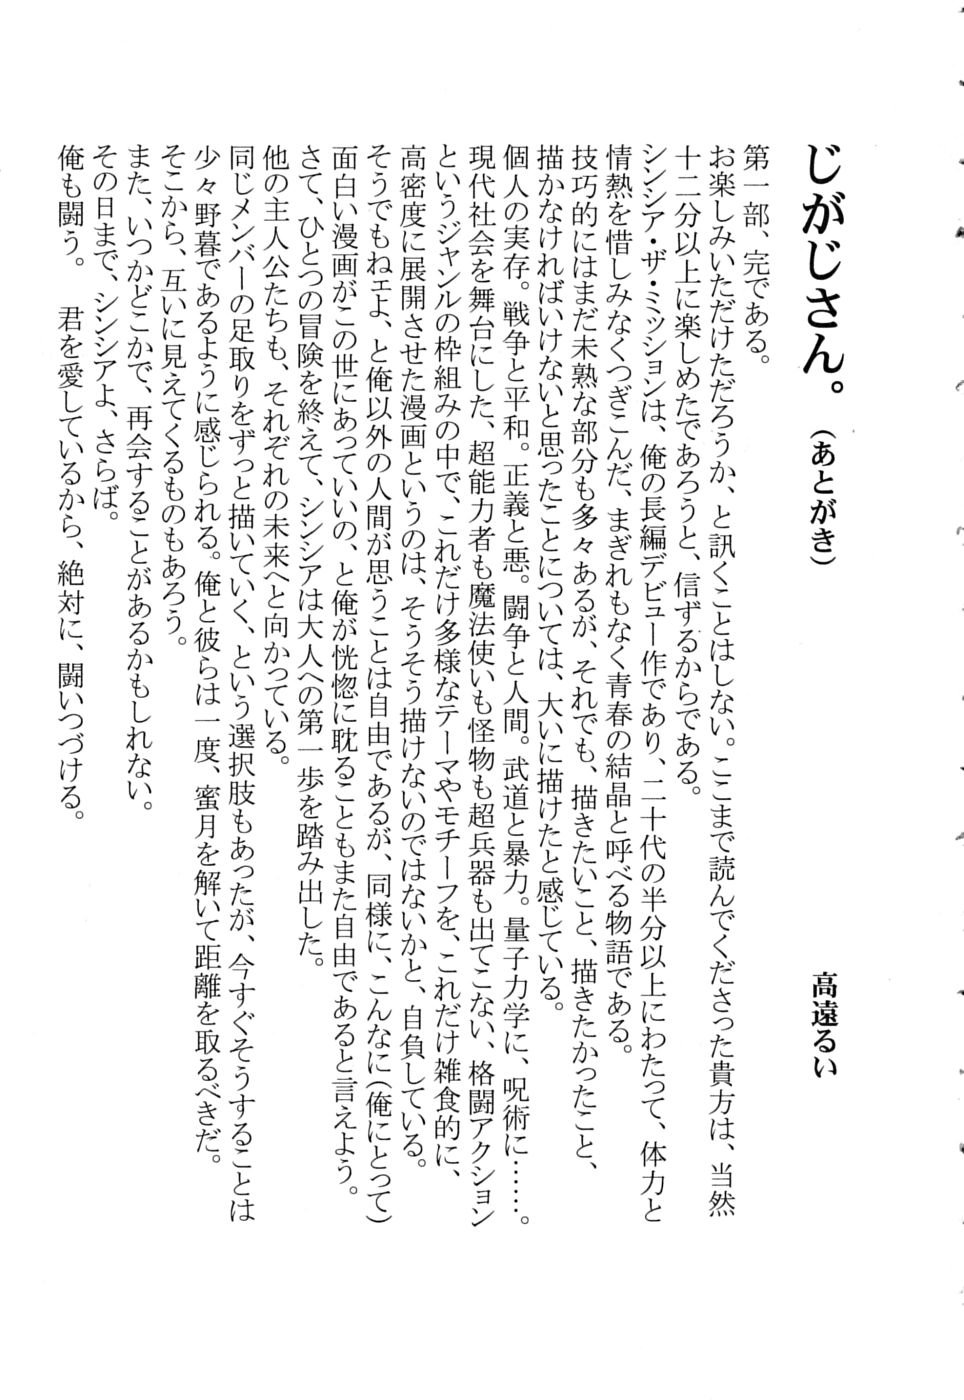 じがじさん。（あとがき）
高遠るい
第一部、完である。
お楽しみいただけただろうか、と訊くことはしない。ここまで読んでくださった貴方は、当然
十二分以上に楽しめたであろうと、信ずるからである。
シンシア・ザ・ミッションは、俺の長編デビュー作であり、二十代の半分以上にわたって、体力と
情熱を惜しみなくつぎこんだ、まぎれもなく青春の結晶と呼べる物語である。
技巧的にはまだ未熟な部分も多々あるが、それでも、描きたいこと、描きたかったこと、
描かなければいけないと思ったことについては、大いに描けたと感じている。
個人の実存。戦争と平和。正義と悪。闘争と人間。武道と暴力。量子力学に、呪術に……。
現代社会を舞台にした、超能力者も魔法使いも怪物も超兵器も出てこない、格闘アクション
というジャンルの枠組みの中で、これだけ多様なテーマやモチーフを、これだけ雑食的に、
高密度に展開させた漫画というのは、そうそう描けないのではないかと、自負している。
そうでもねェよ、と俺以外の人間が思うことは自由であるが、同様に、こんなに（俺にとって）
面白い漫画がこの世にあっていいの、と俺が恍惚に耽ることもまた自由であると言えよう。
さて、ひとつの冒険を終えて、シンシアは大人への第一歩を踏み出した。
他の主人公たちも、それぞれの未来へと向かっている。
同じメンバーの足取りをずっと描いていく、という選択肢もあったが、今すぐそうすることは
少々野暮であるように感じられる。俺と彼らは一度、蜜月を解いて距離を取るべきだ。
そこから、互いに見えてくるものもあろう。
また、いつかどこかで、再会することがあるかもしれない。
その日まで、シンシアよ、さらば。
俺も闘う。　君を愛しているから、絶対に、闘いつづける。